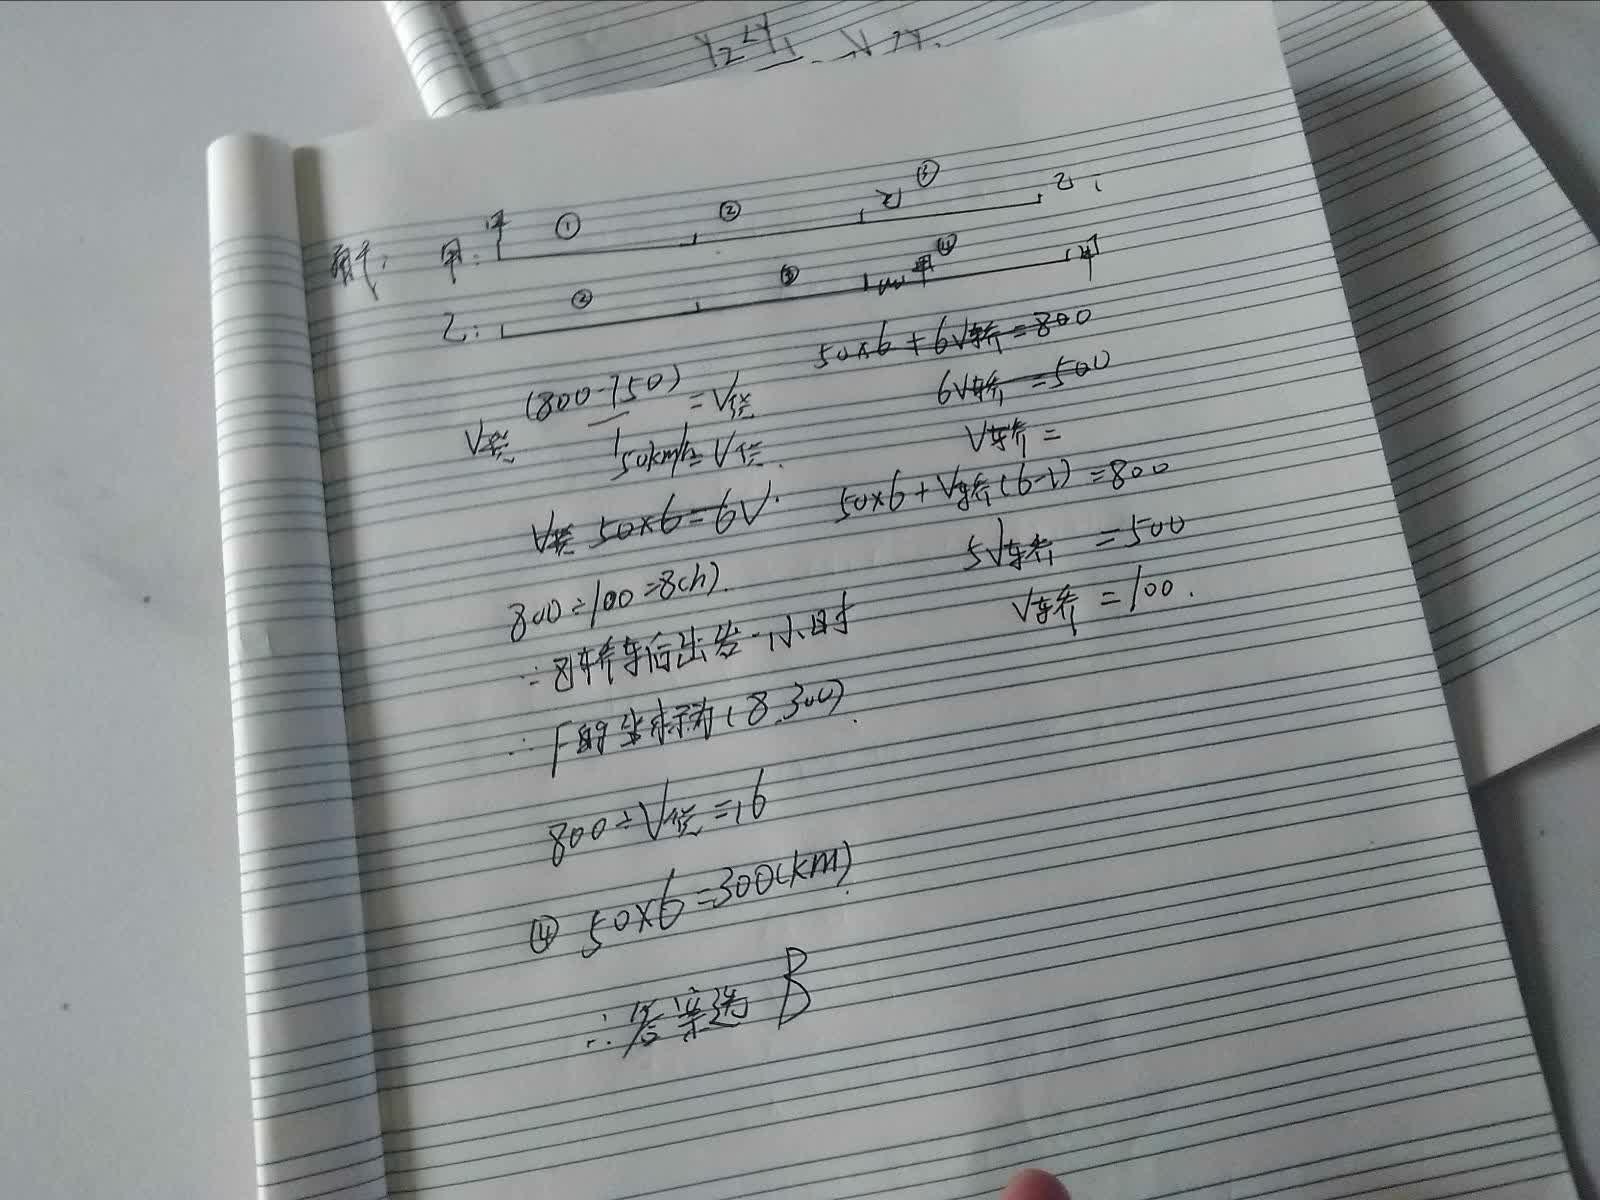 Y₂<Y₁
解: 甲:甲 ① ② 乙 ③ 乙;
乙: ② ③ 甲 ④ 甲
(800-750)/1=V货
50km/h=V货.
50×6=6V
800÷100=8(h).
∵轿车后出发一小时
∴F的坐标为(8,300).
800÷V货=16
④ 50×6=300(km).
∴答案选B
50×6+6V轿=800
6V轿=500
V轿=
50×6+V轿(6-1)=800
5V轿=500
V轿=100.